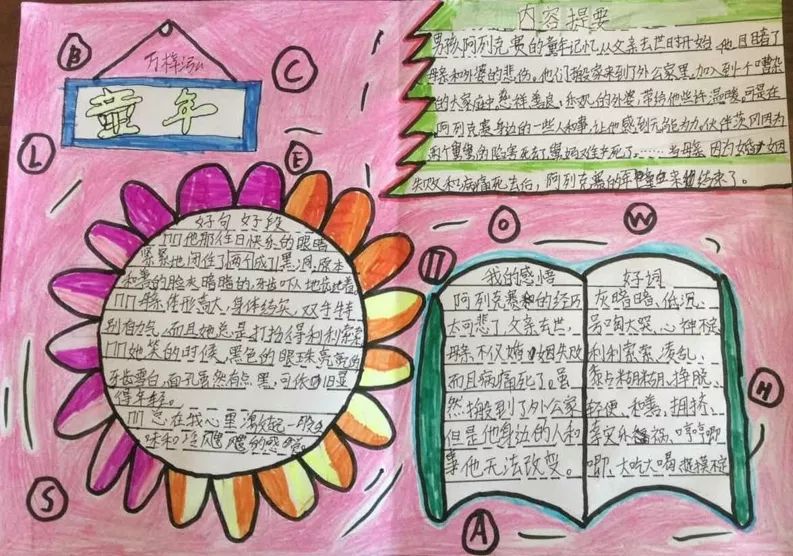 万梓泓
童年
B
C
L
E
O
W
П
H
S
A
内容提要
男孩阿列克赛的童年记忆从父亲去世时开始,他目睹了
母亲和外婆的悲伤。他们搬家来到了外公家里,加入到个嘈杂
的大家庭中,慈祥善良、乐观的外婆,带给他些许温暖。可是在
阿列克赛身边的一些人和事,让他感到无能为力。伙伴茨冈因为
两个舅舅的陷害死去了,舅妈难产死了。……当母亲因为婚姻
失败和病痛死去后,阿列克赛的童年结束了。
好句好段
他那往日快乐的眼睛
紧紧地闭住了两个成了黑洞,原本
和善的脸灰暗暗的,牙齿吓人地龇着。
母亲体形高大,身体结实,双手特
别有力气,而且她总是打扮得利利索索
她笑的时候,黑色的眼珠亮亮的
牙齿雪白,面孔虽然有点黑,可依旧显
得年轻。
总在我心里激起一股
味和冷飕飕的感觉。
我的感悟
阿列克赛的经历
太可悲了,父亲去世,
母亲不仅婚姻失败
而且病痛死了。虽
然搬到了外公家
但是他身边的人和
事他无法改变。
好词
灰暗暗、低沉、
号啕大哭、心神不定
利利索索、凌乱、
黏黏糊糊、挣脱、
轻便、和善、拥挤、
幸灾乐祸、哼哼唧
唧、大吃大喝、捉摸不定